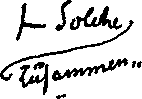 ⊢ Solche
zusammen „